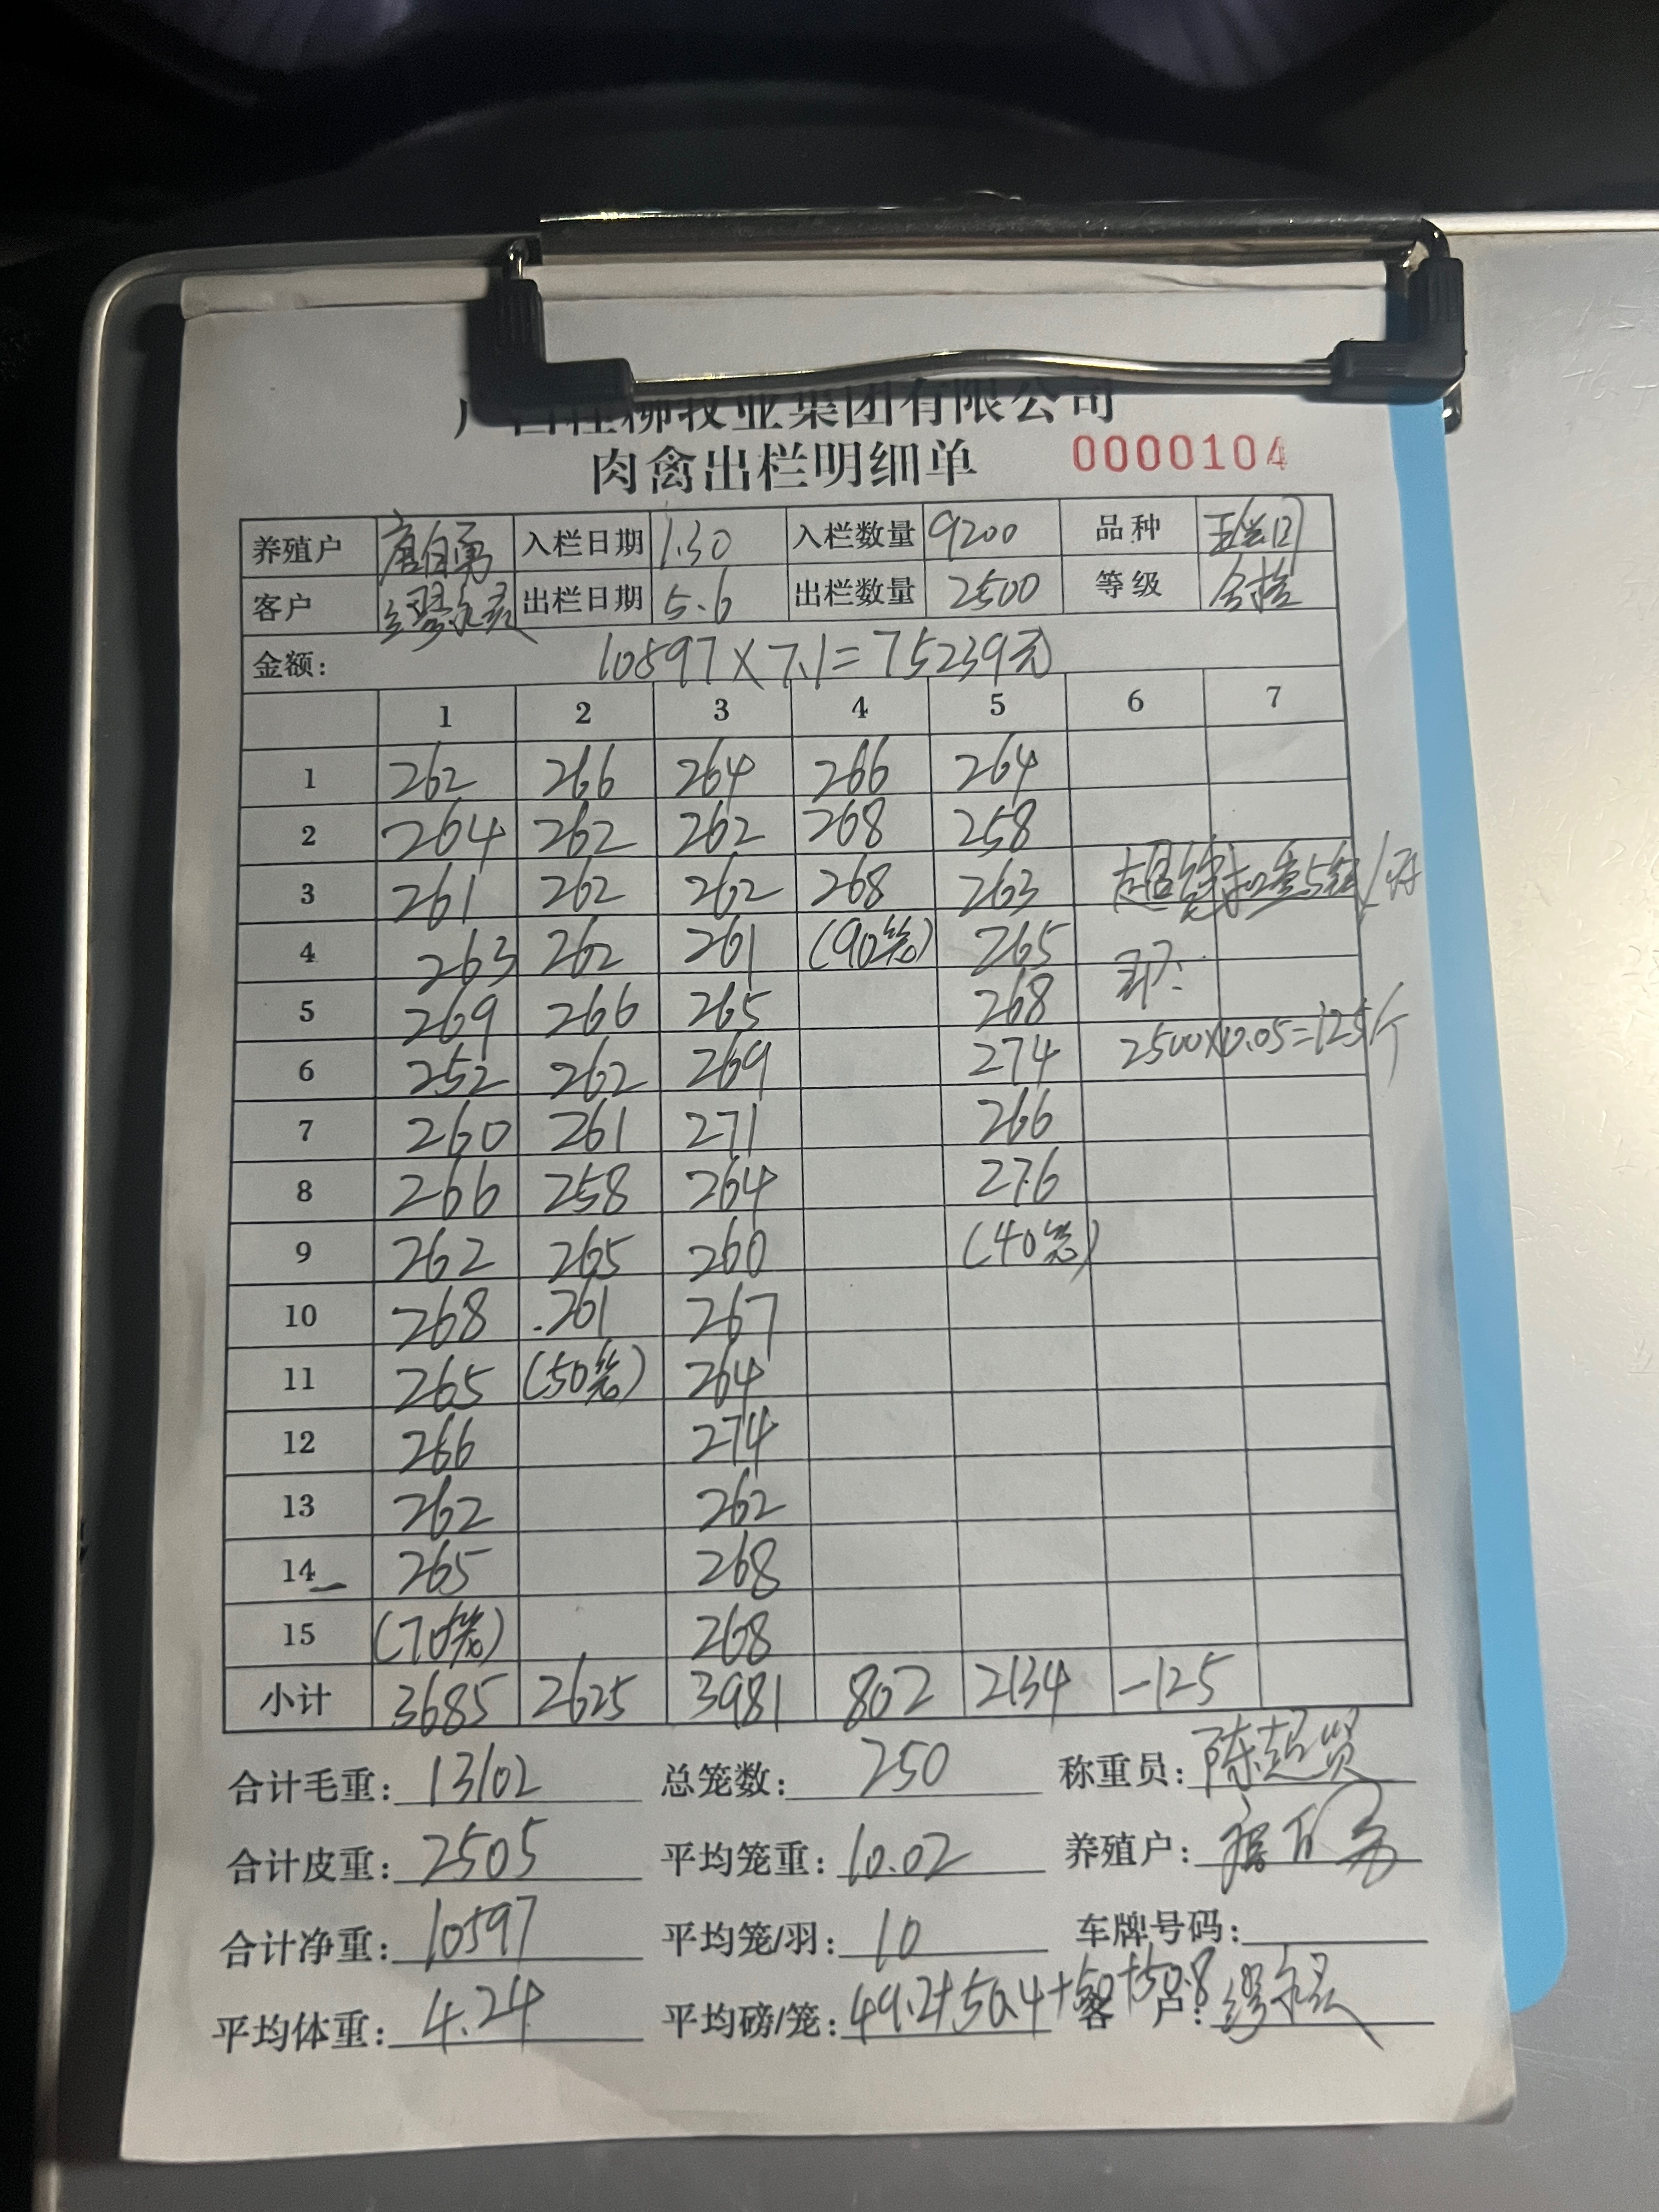 牧业集团有限公司
肉禽出栏明细单 0000104
养殖户 唐自勇 入栏日期 1.30 入栏数量 9200 品种
客户 出栏日期 5.6 出栏数量 2500 等级
金额: 10597×7.1=75239元
1 2 3 4 5 6 7
1 262 266 264 266 264
2 264 262 262 268 258
3 261 262 262 268 263 超 扣重5钱/
4 263 262 261 (90笼) 265 即:
5 269 266 265 268
6 252 262 269 274 2500×0.05=125斤
7 260 261 271 266
8 266 258 264 276
9 262 265 260 (40笼)
10 268 261 267
11 265 (50笼) 264
12 266 274
13 262 262
14 265 268
15 (70笼) 268
小计 3685 2625 3981 802 2134 -125
合计毛重: 13102 总笼数: 250 称重员: 陈超贤
合计皮重: 2505 平均笼重: 10.02 养殖户:
合计净重: 10597 平均笼/羽: 10 车牌号码:
平均体重: 4.24 平均磅/笼: 49.2+50.4+50+50.8 客 户: